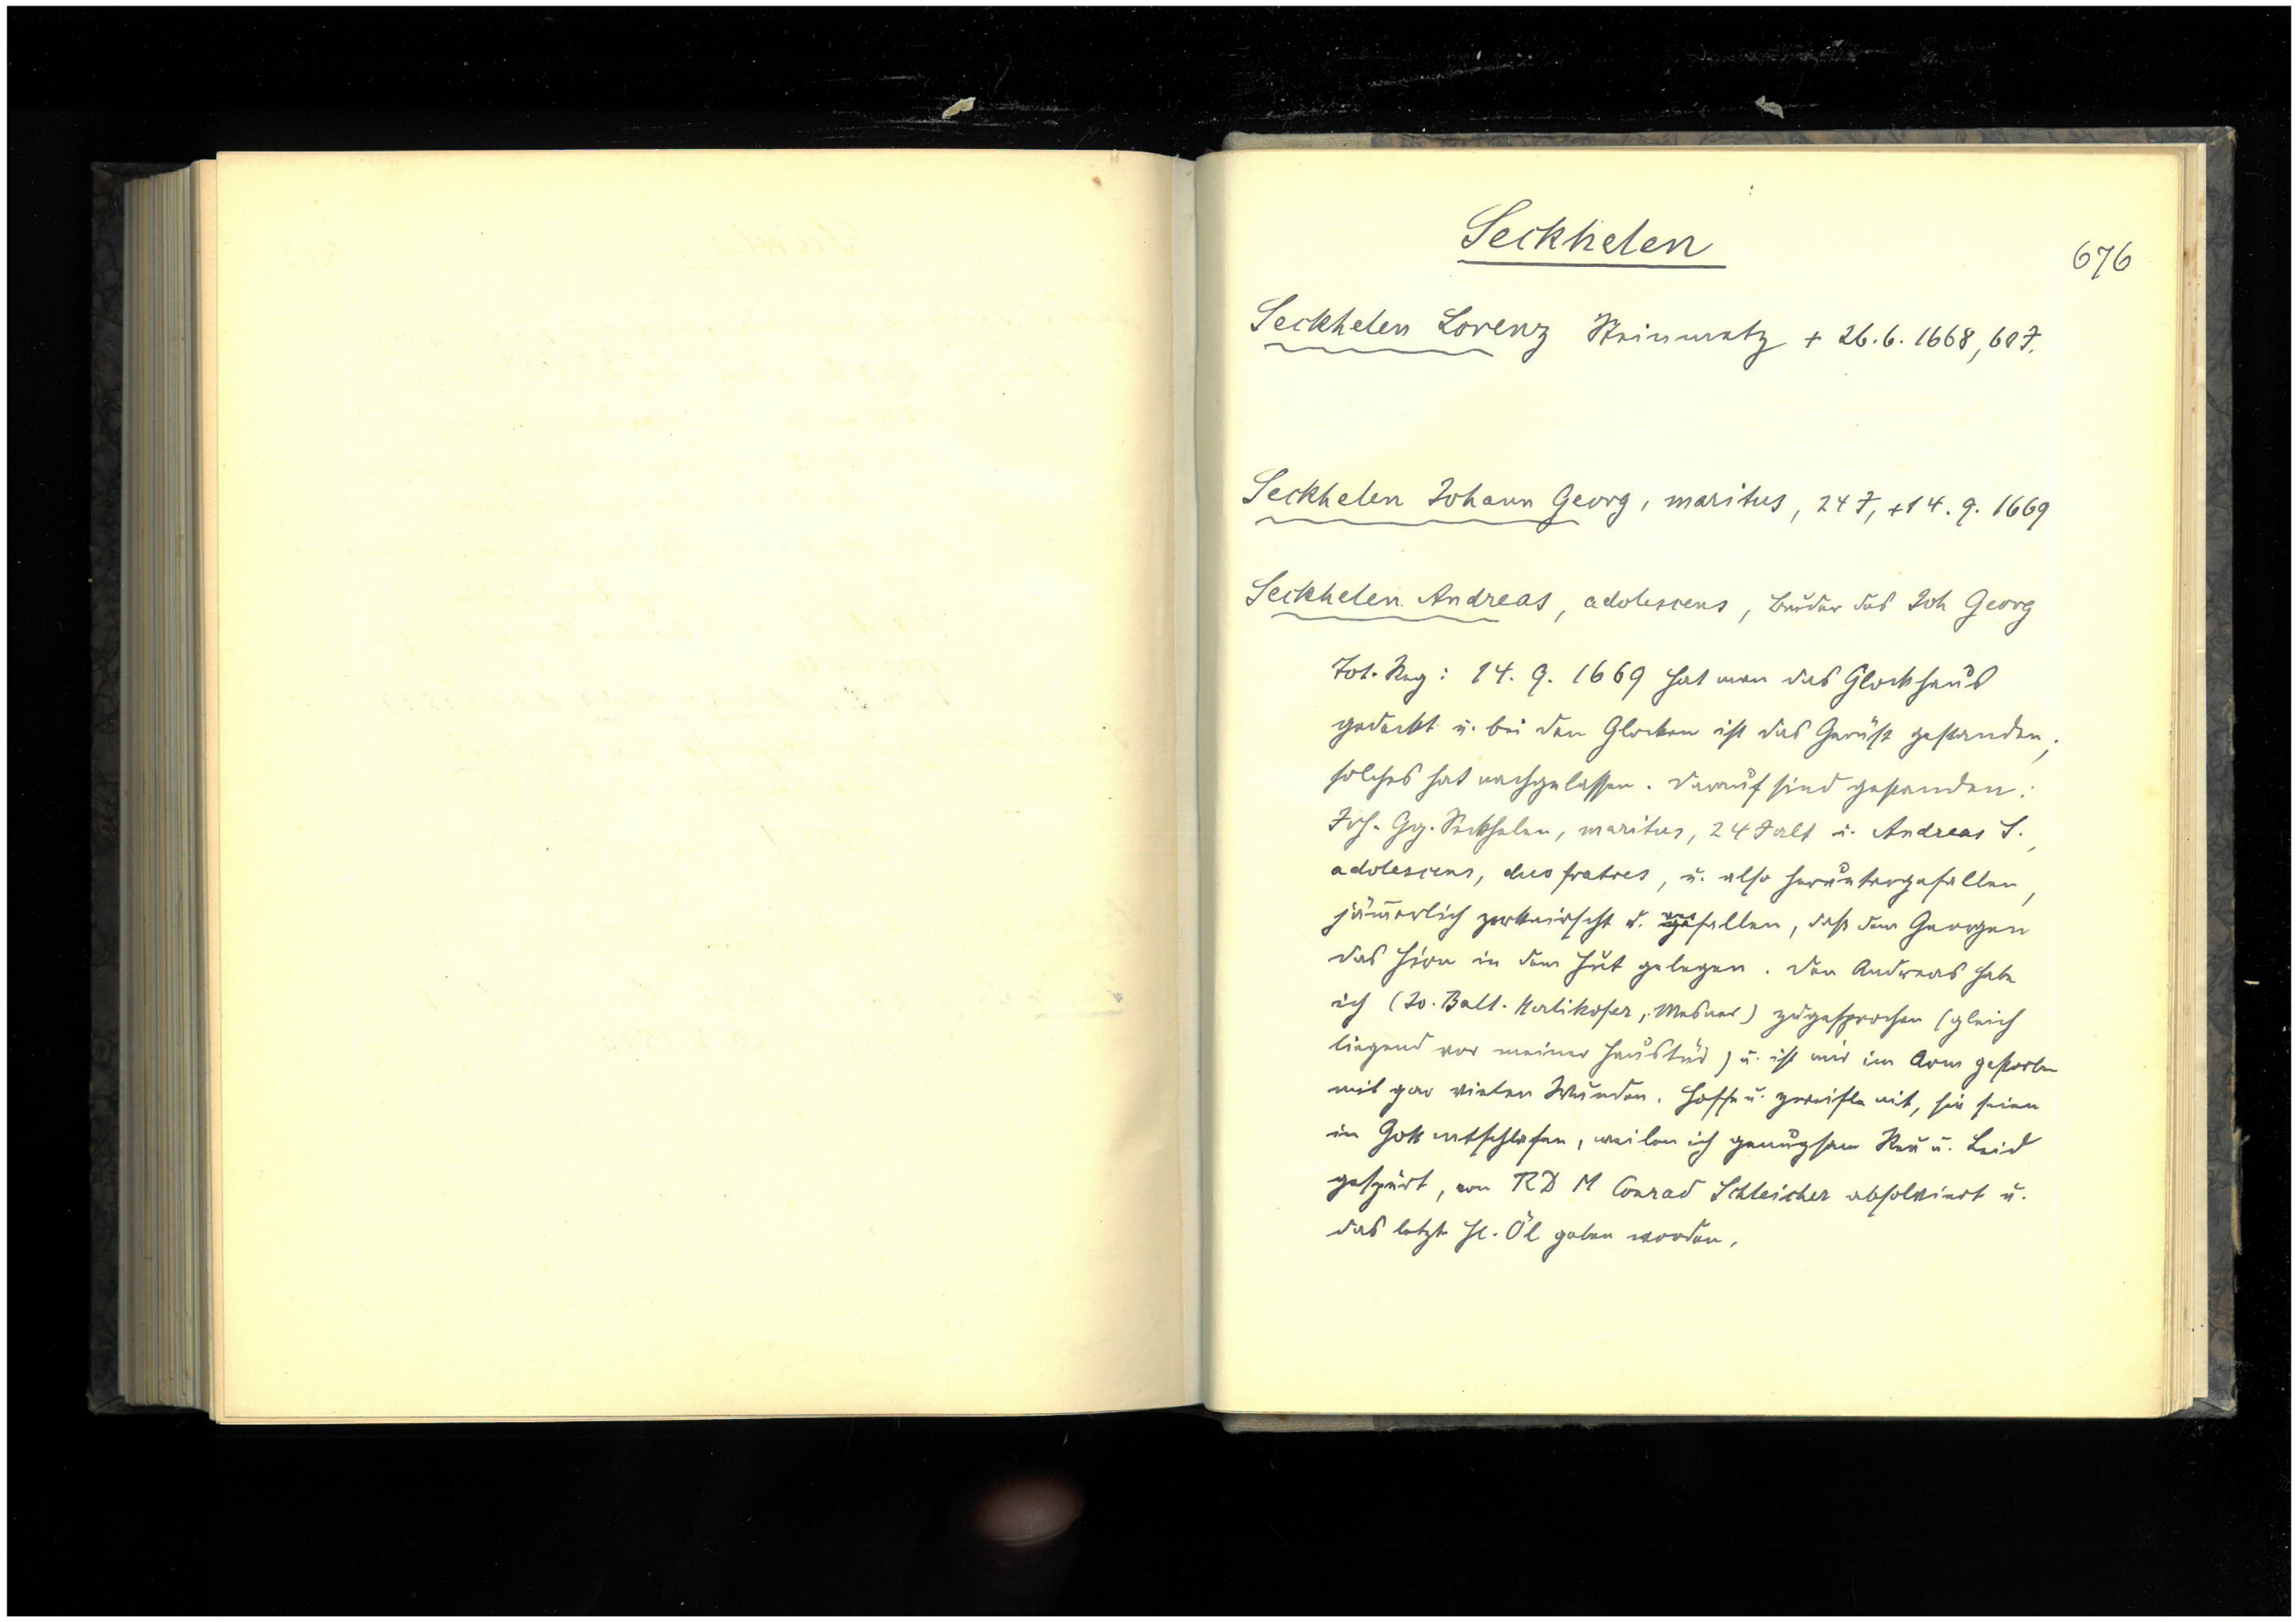 Seckhelen
676
Seckhelen Lorenz Steinmetz + 26.6.1668, 60 J.
Seckhelen Johann Georg, maritus, 24 J, +14.9.1669
Seckhelen Andreas, adolescens, Bruder des Joh Georg
Tot. Reg: 14.9.1669 hat man das Glockhaus
gedeckt u. bei den Glocken ist das Gerüst gestanden;
solches hat nachgelassen. Darauf sind gestanden:
Joh. Gg. Seckhelen, maritus, 24 J alt u. Andreas S.,
adolescens, duo fratres, u. also heruntergefallen,
jämerlich zerknirscht u. fallen, daß dem Georgen
das Hirn in dem Hut gelegen. Den Andreas habe
ich (Jo. Balt. Katikofer, Mesner) zugesprochen (gleich
liegend vor meiner Haustür) u. ist mir im Arm gestorben
mit gar vielen Wunden. Hoffe u. zweifle nit, sie seien
in Gott entschlafen, weilen ich genugsam Reu u. Leid
gespürt, von RD M Conrad Schleicher absolviert u.
das letzte Hl. Öl geben worden.